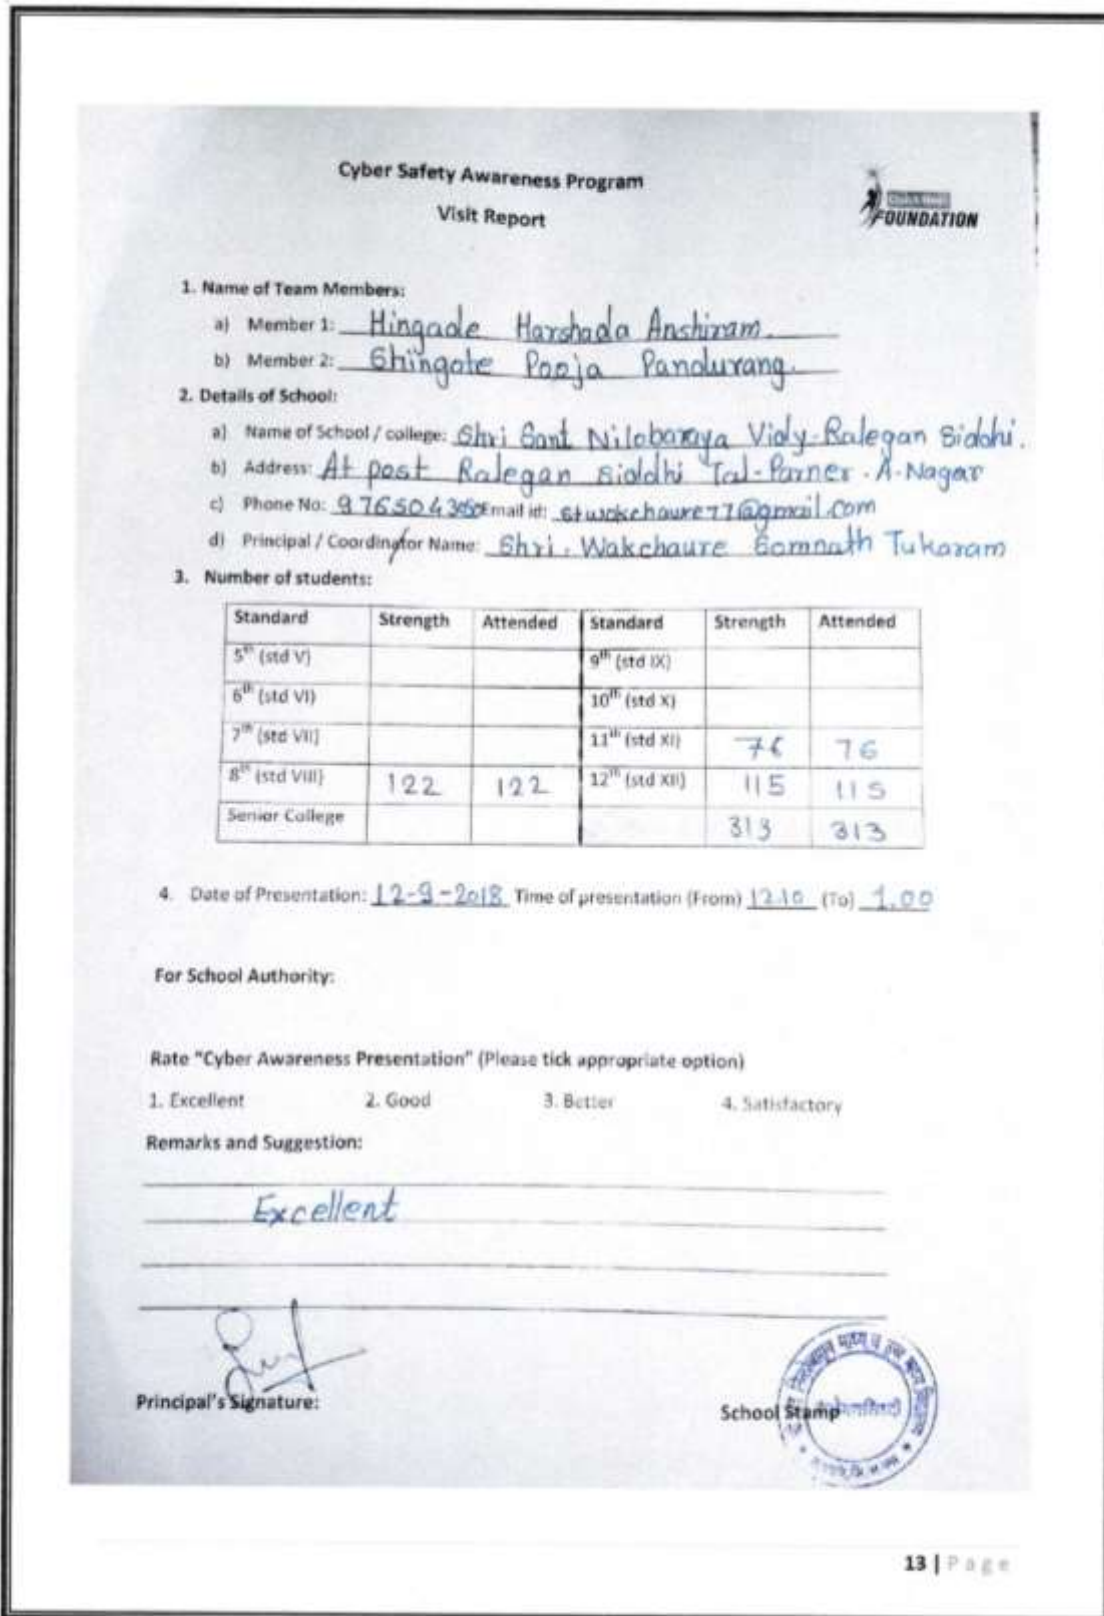 Cyber Safety Awareness Program
Visit Report
Quick Heal
FOUNDATION
1. Name of Team Members:
a) Member 1: Hingade Harshada Anshiram.
b) Member 2: Shingote Pooja Pandurang.
2. Details of School:
a) Name of School / college: Shri Sant Nilobaraya Vidy-Ralegan Siddhi.
b) Address: At post Ralegan Siddhi Tal-Parner. A-Nagar
c) Phone No: Email id: stwakchaure77@gmail.com
d) Principal / Coordinator Name: Shri. Wakchaure Somnath Tukaram
3. Number of students:
Standard Strength Attended Standard Strength Attended
5th (std V) 9th (std IX)
6th (std VI) 10th (std X)
7th (std VII) 11th (std XI) 76 76
8th (std VIII) 122 122 12th (std XII) 115 115
Senior College 313 313
4. Date of Presentation: 12-9-2018 Time of presentation (From) 12.10 (To) 1.00
For School Authority:
Rate "Cyber Awareness Presentation" (Please tick appropriate option)
1. Excellent 2. Good 3. Better 4. Satisfactory
Remarks and Suggestion:
Excellent
Principal's Signature:
School Stamp
13 | Page